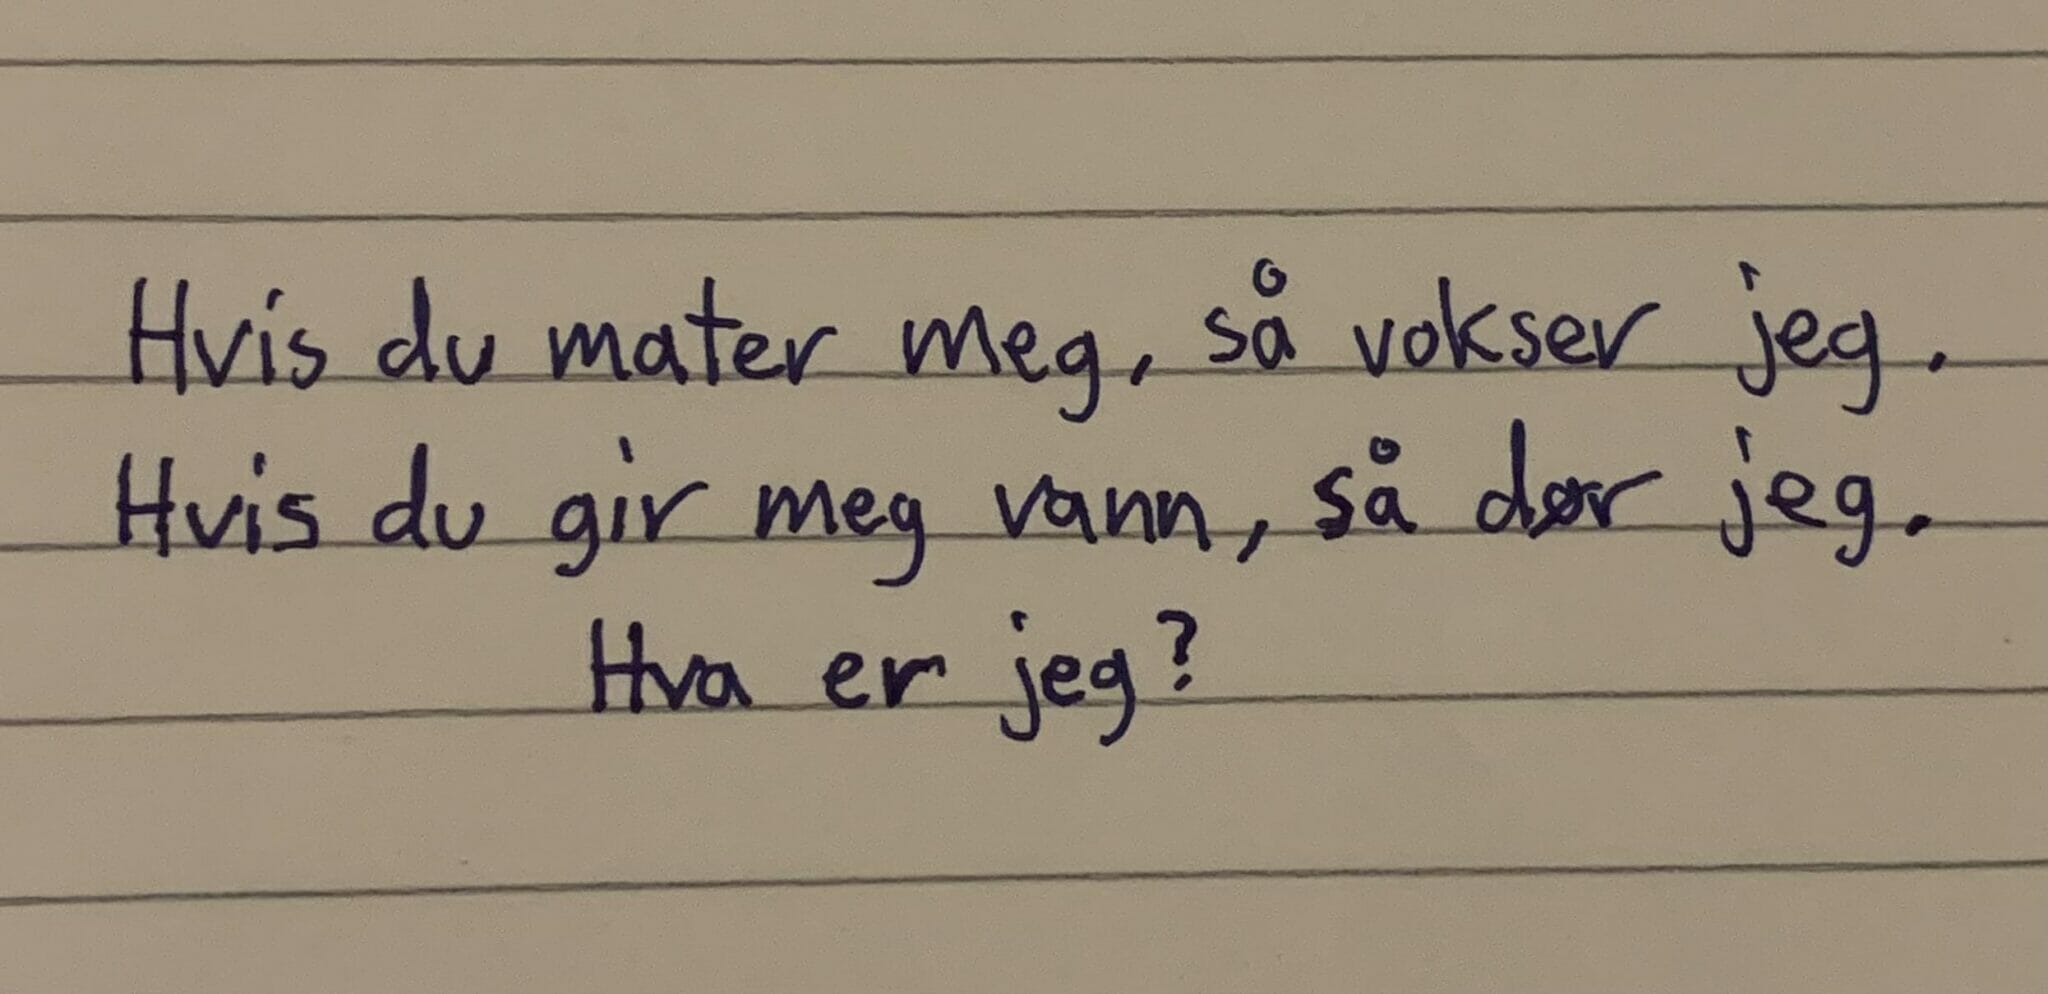 Hvis du mater meg, så vokser jeg.
Hvis du gir meg vann, så dør jeg.
Hva er jeg?